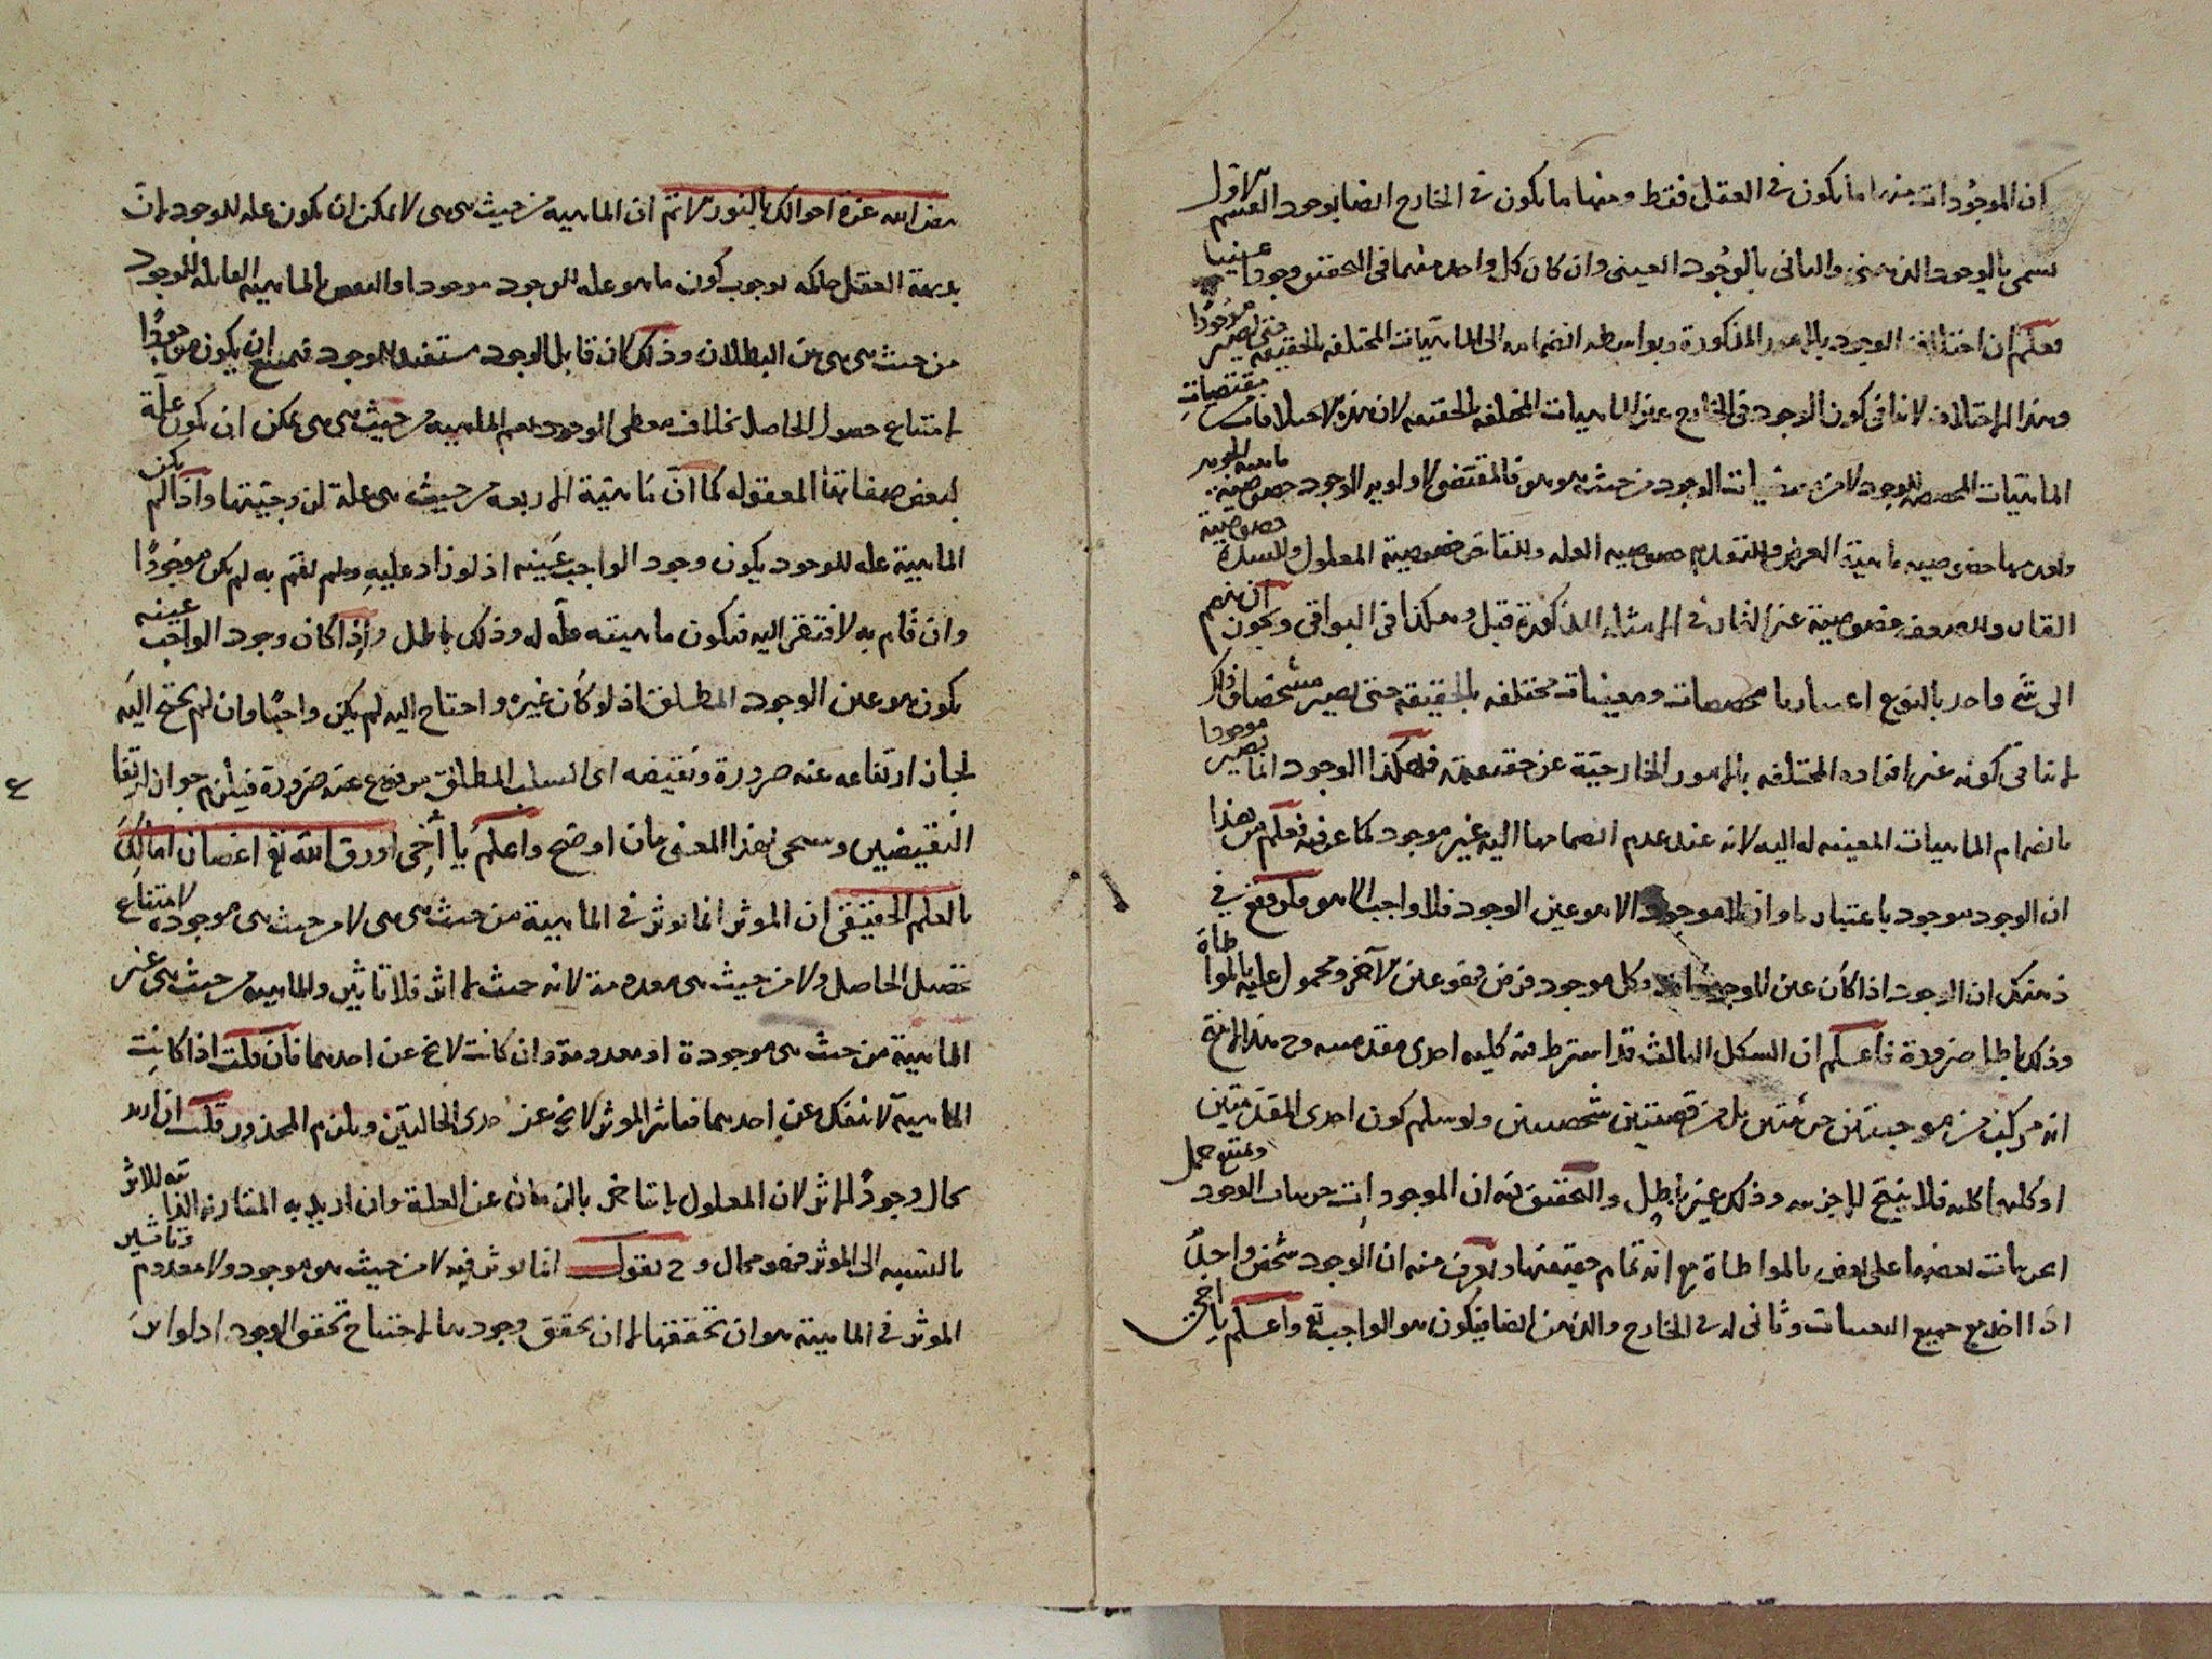 ان الموجودات منها ما يكون في العقل فقط ومنها ما يكون في الخارج ايضا بوجود القسم الاول
يسمى بالوجود الذهني والثاني بالوجود العيني وان كان كل واحد منهما في التحقق وجودا عينيا
فعلم ان اختلاف الوجود بالامور المذكورة وبواسطة انضمامه الى الماهيات المختلفة بالحقيقة حتى يصير موجودا
وهذا الاختلاف لا ينافي كون الوجود في الخارج عين الماهيات المختلفة بالحقيقة لان هذه الاختلافات مقتضيات
الماهيات المخصصة للوجود لا من مقتضيات الوجود من حيث هو هو فالمقتضى لاولوية الوجود خصوصية ماهية الجوهر
خصوصية ماهية العرض وللتقدم خصوصية العلة وللتاخر خصوصية المعلول وللشدة خصوصية
القار وللضعف خصوصية غير القار في الامثلة المذكورة قبل وهكذا في البواقي ويجوز ان ينضم
الى شئ واحد بالنوع اعتبارها مخصصات ومعينات مختلفة بالحقيقة حتى يصير مشخصا وذلك
لا ينافي كونه عين افراده المختلفة بالامور الخارجية عن حقيقته فهكذا الوجود انما يصير موجودا
بانضمام الماهيات المعينة له اليه لانه عند عدم انضمامها اليه غير موجود كما عرفته فعلم من هذا
ان الوجود موجود باعتبار ما وان لا موجود الا هو عين الوجود فلا واجب الا هو ولو وقع في
ذهنك ان الوجود اذا كان عين الموجودات وكل موجود فرض فهو عين الاخر ومحمول عليه بالمواطاة
وذلك باطل ضرورة فاعلم ان الشكل الثالث قد اشترط فيه كلية احدى مقدمتيه وح هذا لا ينتج
انه مركب من موجبتين جزئيتين بل من قضيتين شخصيتين ولو سلم كون احدى المقدمتين
او كلتيهما كلية فلا ينتج الا جزئية وذلك غير باطل والتحقيق فيه ان الموجودات جزئيات الوجود ويمتنع حمل
الجزئيات بعضها على بعض بالمواطاة مع انه تمام حقيقتها ويعرف منه ان الوجود شخص واحد
اذا اخذ مع جميع التعينات وثاني له في الخارج والذهن ايضا فيكون هو الواجب تع واعلم يا اخي
الله غرة احوالك بالنور الاتم ان الماهية من حيث هي هي لا يمكن ان يكون علة للوجود لان
بديهة العقل حاكمة بوجوب كون ما هو علة للوجود موجودا والنقض بالماهية القابلة للوجود
من حيث هي هي بين البطلان وذلك لان قابل الوجود مستفيد للوجود فيمتنع ان يكون موجودا
لامتناع حصول الحاصل بخلاف معطى الوجود نعم الماهية من حيث هي هي يمكن ان يكون علة
لبعض صفاتها المعقولة كما ان ماهية الاربعة من حيث هي علة لزوجيتها واذا لم يكن
الماهية علة للوجود يكون وجود الواجب عينه اذ لو زاد عليه ولم يقم به لم يكن موجودا
وان قام به لافتقر اليه فتكون ماهيته علة له وذلك باطل واذا كان وجود الواجب عينه
يكون هو عين الوجود المطلق اذ لو كان غيره واحتاج اليه لم يكن واجبا وان لم يحتج اليه
لجاز ارتفاعه عنه ضرورة ونقيضه اي السلب المطلق مرفوع عنه ضرورة فيلزم جواز ارتفاع
النقيضين وسيجئ هذا المعنى بيان اوضح واعلم يا اخي اورق الله تع اغصان امالك
بالعلم الحقيقي ان الموثر انما يوثر في الماهية من حيث هي هي لا من حيث هي موجودة لامتناع
تحصيل الحاصل ولا من حيث هي معدومة لانه حيث لا اثر فلا تاثير والماهية من حيث هي غير
الماهية من حيث هي موجودة او معدومة وان كانت لا تخ عن احدهما فان قلت اذا كانت
الماهية لا تنفك عن احدهما فتاثير الموثر لا يخ عن احدى الحالتين ويلزم المحذور قلت ان اريد
حال وجود الاثر لان المعلول لا يتاخر بالزمان عن العلة وان اريد به المقارنة الذاتية للاثر
بالنسبة الى الموثر فهو محال وح نقول انما يوثر فيه لا من حيث هو موجود ولا معدوم وتاثير
الموثر في الماهية هو ان تحققها لا ان يحقق وجودها لاحتياج تحقق الوجود
ع